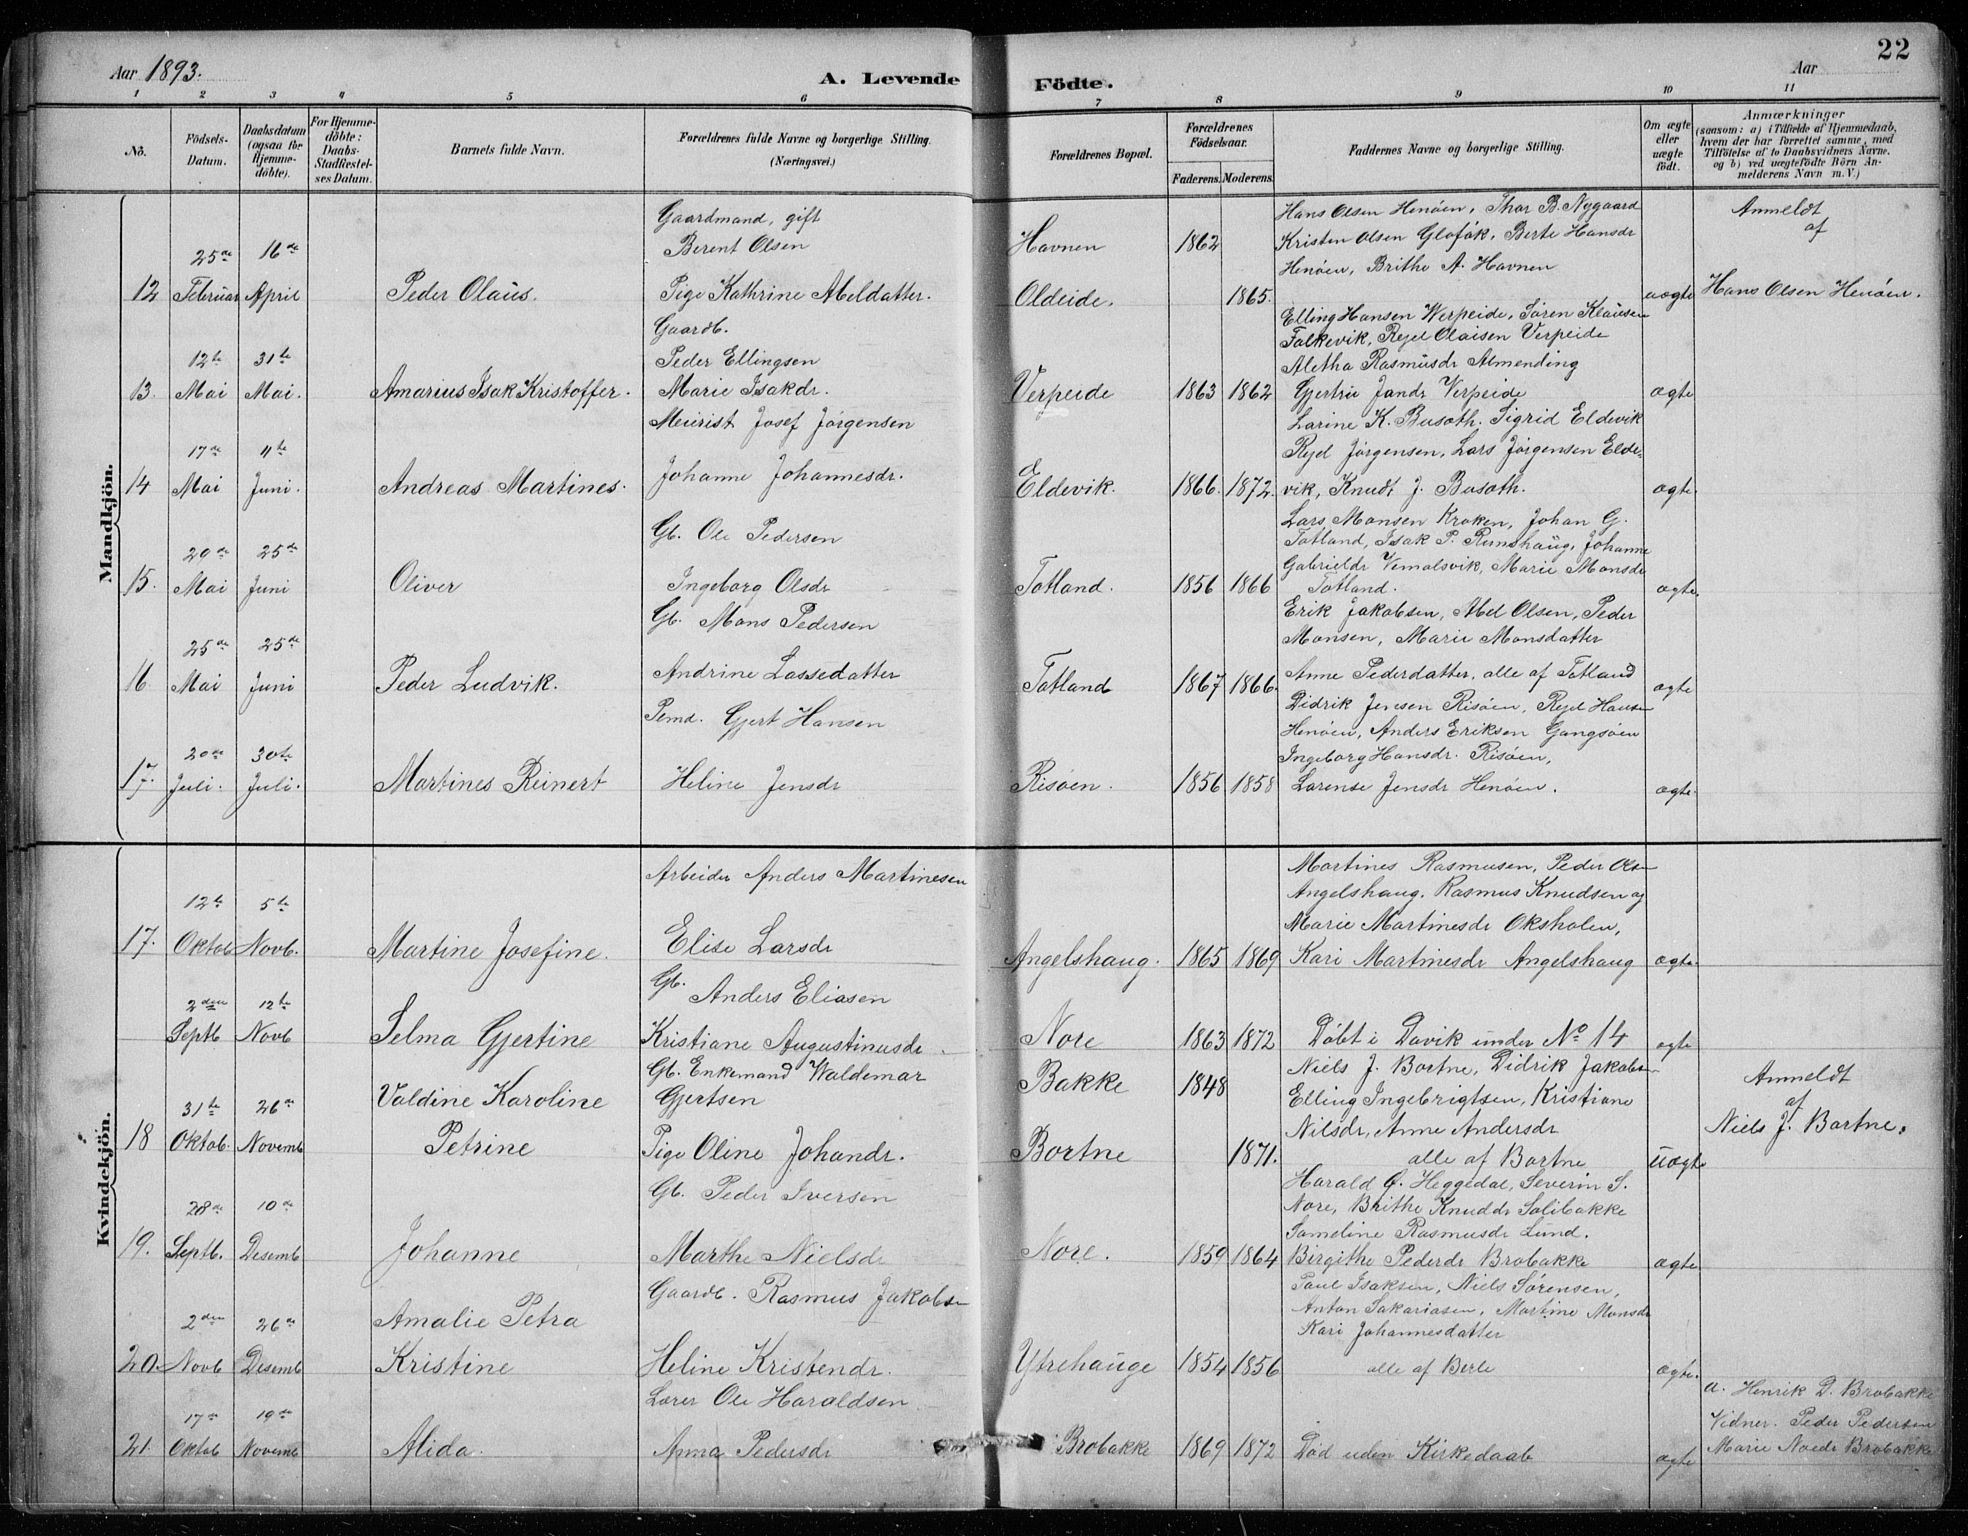 Aar 1893.
A. Levende Födte.
Aar
22
1 2 3 4 5 6 7 8 9 10 11
No.
Födsels-Datum.
Daabsdatum (ogsaa for Hjemme-döbte).
For Hjemme-döbte: Daabs-Stadfæstel-ses Datum.
Barnets fulde Navn.
Forældrenes fulde Navne og borgerlige Stilling. (Næringsvei.)
Forældrenes Bopæl.
Forældrenes Födselsaar.
Faderens. Moderens.
Faddernes Navne og borgerlige Stilling.
Om ægte eller uægte födt.
Anmærkninger
(saasom: a) i Tilfælde af Hjemmedaab, hvem der har forrettet samme, med Tilföielse af to Daabsvidners Navne. og b) ved uægtefödte Börn An-melderens Navn m. V.)
Mandkjön.
12 25de Februar 16de April
Peder Olaus.
Gaardmand, gift
Berent Olsen
Pige Kathrine Abeldatter.
Havnen 1862
Oldeide. 1865.
Hans Olsen Henøen, Thor B. Nygaard
Kristen Olsen Glofok, Berte Hansdr
Henøen, Brithe A. Havnen
uægte
Anmeldt
af
Hans Olsen Henøen.
13. 12te Mai 31te Mai.
Amarius Isak Kristoffer.
Gaardb.
Peder Ellingsen
Marie Isakdr.
Verpeide 1863 1862
Elling Hansen Werpeide, Søren Klausen
Falkevik, Rejel Olaisen Verpeide
Aletha Rasmusdr Almending
Gjertru Jandr Verpeide
ægte
14 17de Mai 11te Juni.
Andreas Martines.
Meierist Josef Jørgensen
Johanne Johannesdr.
Eldevik. 1866. 1872.
Larine K. Busøth. Sigrid Eldevik
Rejel Jørgensen, Lars Jørgensen Elde-
vik, Knudt J. Busøth.
ægte.
15. 20de Mai 25de Juni
Oliver
Gb. Ole Pedersen
Ingeborg Olsdr
Totland. 1856 1866
Lars Monsen Kroken, Johan G.
Totland, Isak P. Rimshaug, Johanne
Gabrieldr Vemolsvik, Marie Monsdr
Totland.
ægte.
16 25de Mai 25de Juni
Peder Ludvik.
Gb. Mons Pedersen
Andrine Lassedatter
Totland 1867 1866.
Erik Jakobsen, Abel Olsen, Peder
Monsen, Marie Monsdatter
Anne Pederdatter, alle af Totland
ægte
17. 20de Juli. 30te Juli.
Martines Reinert
Pemd. Gjert Hansen
Heline Jensdr
Risøen. 1856 1858
Didrik Jensen Risøen, Rejel Hansen
Henøen, Anders Eriksen Gangsøen
Ingeborg Hansdr. Risøen,
Larense Jensdr Henøen.
ægte.
Kvindekjön.
17. 12te Oktob 5te Novb.
Martine Josefine.
Arbeider Anders Martinesen
Elise Larsdr
Angelshaug. 1865 1869
Martines Rasmusen, Peder Olsen
Angelshaug, Rasmus Knudsen og
Marie Martinesdr Oksholen,
Kari Martinesdr Angelshaug
ægte
2den Septb 12te Novb
Selma Gjertine
Gb.
Anders Eliasen
Kristiane Augustinusdr.
Nore 1863 1872
Døbt i Davik under No 14
ægte
18 31te Oktob. 26de Novemb
Valdine Karoline
Petrine
Gb. Enkemand Waldemar
Gjertsen
Pige Oline Johandr.
Bakke 1848
Bortne 1871.
Niels J. Bortne, Didrik Jakobsen
Elling Ingebrigtsen, Kristiane
Nilsdr, Anne Andersdr
alle af Bortne
uægte
Anmeldt
af
Niels J. Bortne.
19. 28de Septb. 10de Desemb
Johanne
Gb. Peder Iversen
Marthe Nielsdr
Nore. 1859 1864
Harald O. Heggedal, Severin S.
Nore, Brithe Knuddr Solibakke
Sameline Rasmusdr Lund.
Birgithe Pederdr Brobakke
ægte
20. 2den Novb 26de Desemb
Amalie Petra
Kristine
Gaardb. Rasmus Jakobsen
Heline Kristendr.
Ytrehauge 1854 1856
Paul Isaksen, Niels Sørensen,
Anton Sakariasen, Martine Monsdr
Kari Johannesdatter
alle af Berle
ægte.
21. 17de Oktob 19de Novemb
Alida.
Lærer Ole Haraldsen
Anna Pedersdr
Brobakke 1869 1872
Død uden Kirkedaab
ægte
a. Henrik D. Brobakke
Vidner. Peder Pedersen
Marie Brobakke